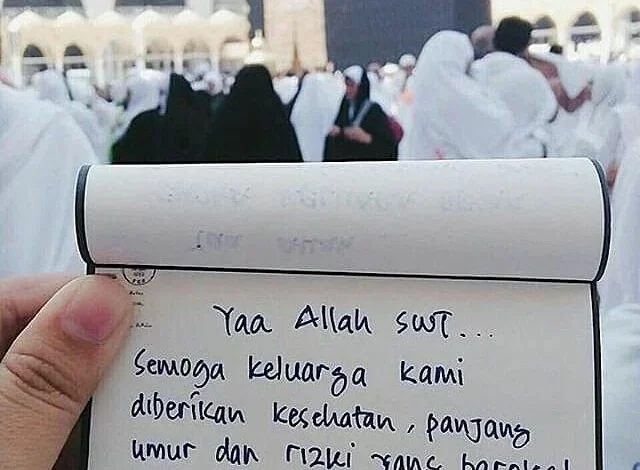 Yaa Allah SWT...
Semoga keluarga kami
diberikan kesehatan, panjang
umur dan rizki yang